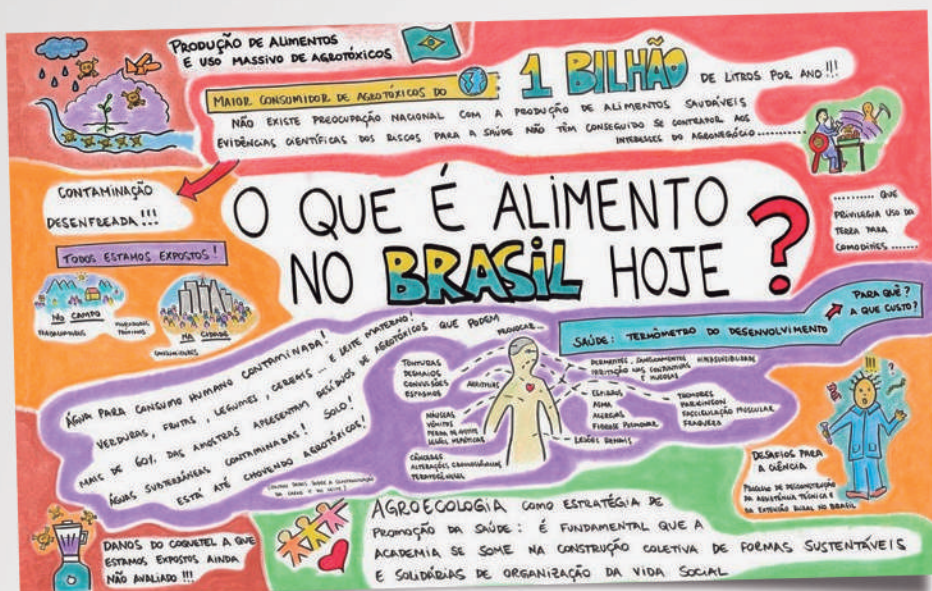 PRODUÇÃO DE ALIMENTOS
E USO MASSIVO DE AGROTÓXICOS
MAIOR CONSUMIDOR DE AGROTÓXICOS DO
1 BILHÃO DE LITROS POR ANO!!!
NÃO EXISTE PREOCUPAÇÃO NACIONAL COM A PRODUÇÃO DE ALIMENTOS SAUDÁVEIS
EVIDÊNCIAS CIENTÍFICAS DOS RISCOS PARA A SAÚDE NÃO TÊM CONSEGUIDO SE CONTRAPOR AOS
INTERESSES DO AGRONEGÓCIO
QUE
PRIVILEGIA USO DA
TERRA PARA
COMODITIES
CONTAMINAÇÃO
DESENFREADA!!!
TODOS ESTAMOS EXPOSTOS!
NO CAMPO
TRABALHADORES
MORADORES
PRÓXIMOS
NA CIDADE
CONSUMIDORES
O QUE É ALIMENTO
NO BRASIL HOJE?
PARA QUÊ?
A QUE CUSTO?
SAÚDE: TERMÔMETRO DO DESENVOLVIMENTO
ÁGUA PARA CONSUMO HUMANO CONTAMINADA!
VERDURAS, FRUTAS, LEGUMES, CEREAIS... E LEITE MATERNO!
MAIS DE 60% DAS AMOSTRAS APRESENTAM RESÍDUOS DE AGROTÓXICOS QUE PODEM
PROVOCAR...
ÁGUAS SUBTERRÂNEAS CONTAMINADAS! SOLO!
ESTÁ ATÉ CHOVENDO AGROTÓXICOS!
TONTURAS
DESMAIOS
CONVULSÕES
ESPASMOS
ARRITMIAS
NÁUSEAS
VÔMITOS
LESÕES HEPÁTICAS
CÂNCERES
ALTERAÇÕES CROMOSSÔMICAS
TERATOGÊNESE
DERMATITES, SANGRAMENTOS HIPERSENSIBILIDADE
IRRITAÇÃO NAS CONJUNTIVAS
E MUCOSAS
ESPIRROS
ASMA
ALERGIAS
FIBROSE PULMONAR
LESÕES RENAIS
TREMORES
PARKINSON
FASCICULAÇÃO MUSCULAR
FRAQUEZA
DESAFIOS PARA
A CIÊNCIA
PROCESSO DE DESCONSTRUÇÃO
DA ASSISTÊNCIA TÉCNICA E
DA EXTENSÃO RURAL NO BRASIL
DANOS DO COQUETEL A QUE
ESTAMOS EXPOSTOS AINDA
NÃO AVALIADO!!!
AGROECOLOGIA COMO ESTRATÉGIA DE
PROMOÇÃO DA SAÚDE: É FUNDAMENTAL QUE A
ACADEMIA SE SOME NA CONSTRUÇÃO COLETIVA DE FORMAS SUSTENTÁVEIS
E SOLIDÁRIAS DE ORGANIZAÇÃO DA VIDA SOCIAL